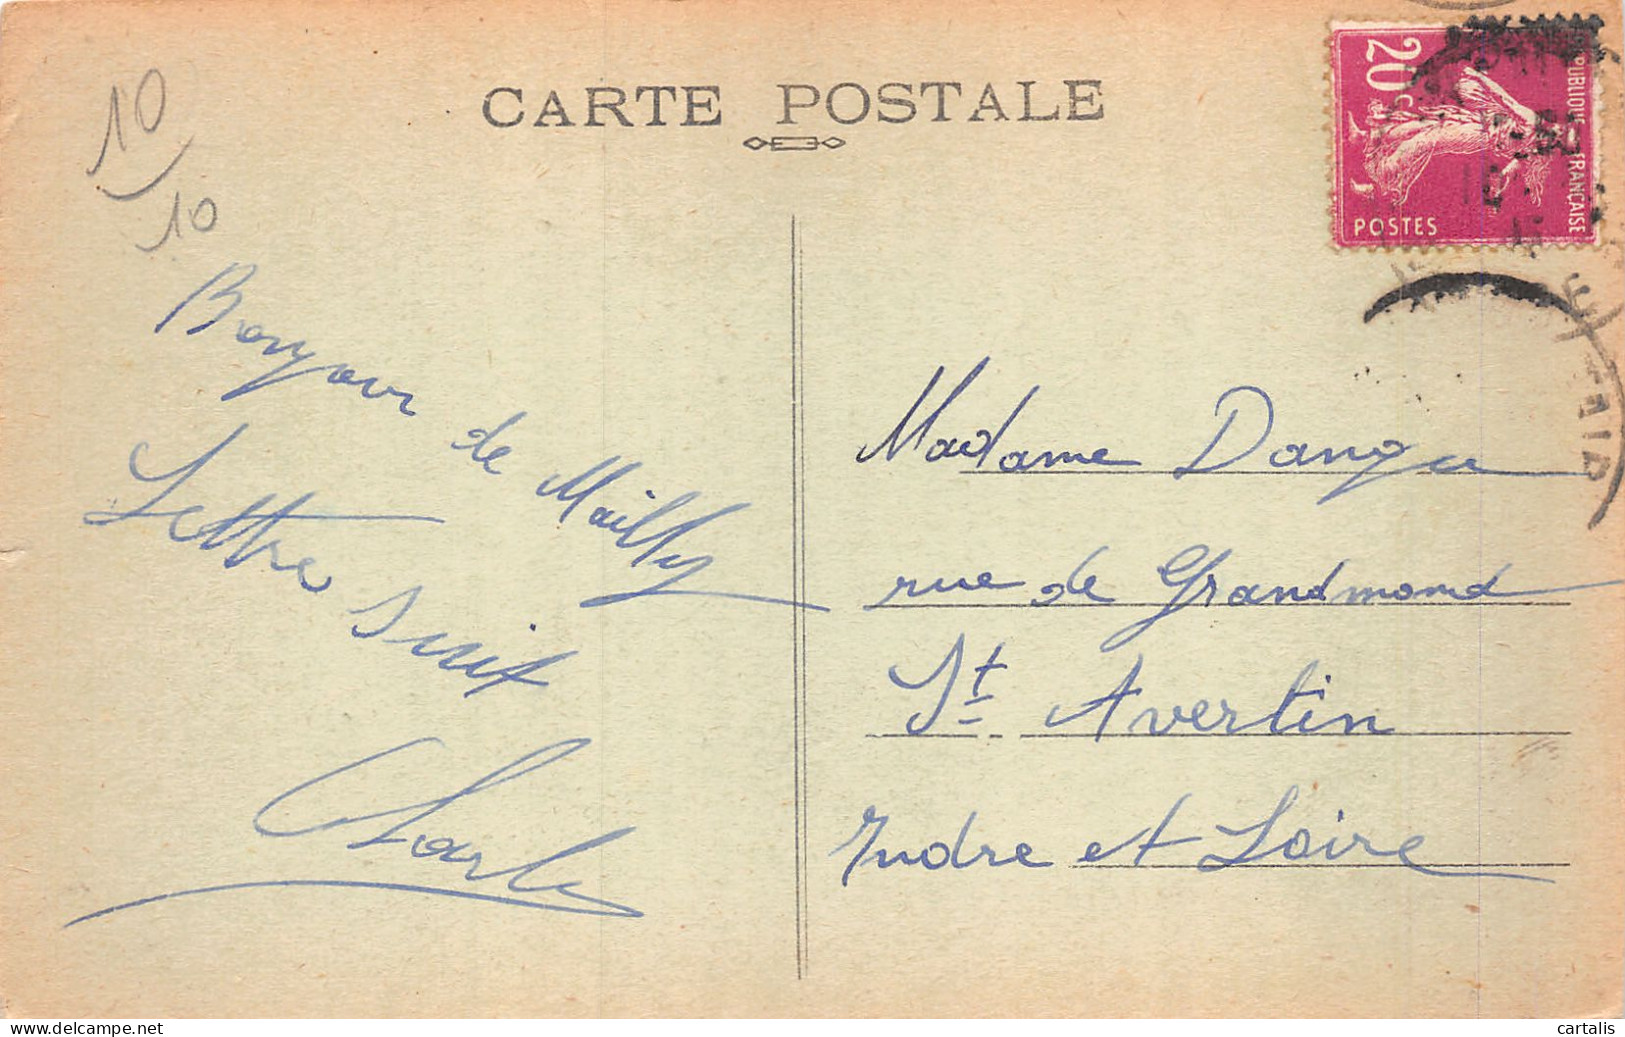 CARTE POSTALE
10
10
Bonjour
de Mailly
Lettre suit
Charles
RÉPUBLIQUE FRANÇAISE
20 c
POSTES
Madame
rue de Grandmond
St Avertin
Indre et Loire
cartalis